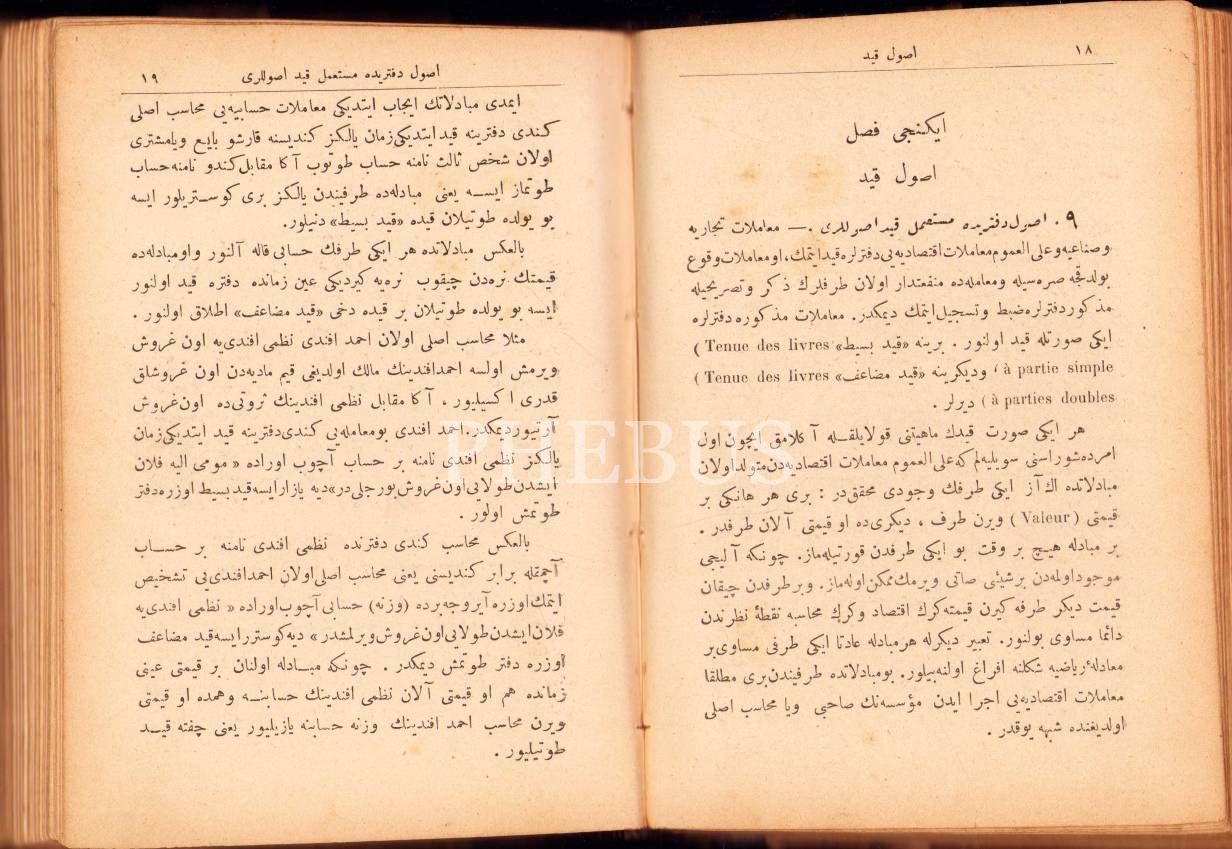 ١٨
اصول قيد
ايكنجى فصل
اصول قيد
٩ . اصول دفتريده مستعمل قيد اصوللرى . — معاملات تجاريه
وصناعيه وعلى العموم معاملات اقتصاديه‌يى دفترلره قيد ايتمك، او معاملات وقوع
بولدقجه صره‌سيله ومعامله‌ده منفعتدار اولان طرفلرك ذكر وتصريحيله
مذكور دفترلره ضبط وتسجيل ايتمك ديمكدر. معاملات مذكوره دفترلره
ايكى صورتله قيد اولنور . برينه «قيد بسيط» Tenue des livres )
à partie simple ) ، وديكرينه «قيد مضاعف» Tenue des livres )
à parties doubles ) ديرلر .
هر ايكى صورت قيدك ماهيتنى قولايلقــله آكلامق ايچون اول
امرده شوراسنى سويليه‌لم كه على العموم معاملات اقتصاديه‌دن متولد اولان
مبادلاتده اك آز ايكى طرفك وجودى محققدر : برى هر هانكى بر
قيمتى ( Valeur ) ويرن طرف ، ديكرى‌ده او قيمتى آلان طرفدر .
بر مبادله هيچ بر وقت بو ايكى طرفدن قورتيله‌ماز. چونكه آليجى
موجود اولمه‌دن برشيئى صاتى ويرمك ممكن اوله‌ماز. وبر طرفدن چيقان
قيمت ديكر طرفه كيرن قيمته كرك اقتصاد وكرك محاسبه نقطهٔ نظرندن
دائما مساوى بولنور. تعبير ديكرله هر مبادله عادتا ايكى طرفى مساوى بر
معادلهٔ رياضيه شكلنه افراغ اولنه‌بيلور. بومبادلاتده طرفيندن برى مطلقا
معاملات اقتصاديه‌يى اجرا ايدن مؤسسه‌نك صاحبى ويا محاسب اصلى
اولديغنده شبهه يوقدر .
اصول دفتريده مستعمل قيد اصوللرى
١٩
ايمدى مبادلاتك ايجاب ايتديكى معاملات حسابيه‌يى محاسب اصلى
كندى دفترينه قيد ايتديكى زمان يالكز كنديسنه قارشو بايع ويا مشترى
اولان شخص ثالث نامنه حساب طوتوب آكا مقابل كندو نامنه حساب
طوتماز ايســه يعنى مبادله‌ده طرفيندن يالكز برى كوســتريلور ايسه
بو يولده طوتيلان قيده «قيد بسيط» دنيلور.
بالعكس مبادلاتده هر ايكى طرفك حسابى قاله آلنور واومبادله‌ده
قيمتك نره‌دن چيقوب نره‌يه كيرديكى عين زمانده دفتره قيد اولنور
ايسه بو يولده طوتيلان بر قيده دخى «قيد مضاعف» اطلاق اولنور .
مثلا محاسب اصلى اولان احمد افندى نظمى افندى‌يه اون غروش
ويرمش اولسه احمد افندينك مالك اولديغى قيم ماديه‌دن اون غروشلق
قدرى اكسيليور ، آكا مقابل نظمى افندينك ثروتى‌ده اون غروش
آرتيور ديمكدر. احمد افندى بو معامله‌يى كندى دفترينه قيد ايتديكى زمان
يالكز نظمى افندى نامنه بر حساب آچوب اوراده « مومى اليه فلان
ايشدن طولايى اون غروش بورجلى‌در» ديه يازار ايسه قيد بسيط اوزره دفتر
طوتمش اولور .
بالعكس محاسب كندى دفترنده نظمى افندى نامنه بر حســاب
آچمقله برابر كنديسنى يعنى محاسب اصلى اولان احمد افندى‌يى تشخيص
ايتمك اوزره آيروجه برده (وزنه) حسابى آچوب اوراده « نظمى افندى‌يه
فلان ايشدن طولايى اون غروش ويرلمشدر » ديه كوسترر ايسه قيد مضاعف
اوزره دفتر طوتمش ديمكدر . چونكه مبــادله اولنان بر قيمتى عينى
زمانده هم او قيمتى آلان نظمى افندينك حسابنــه وهمده او قيمتى
ويرن محاسب احمد افندينك وزنه حسابنه يازيليور يعنى چفته قيــد
طوتيليور .
PHEBUS